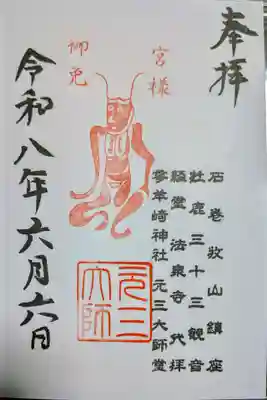 奉拝
石巻牧山鎮座
牡鹿三十三観音
額堂法泉寺代拝
零羊崎神社元三大師堂
宮様
御免
元三大師
令和八年六月六日